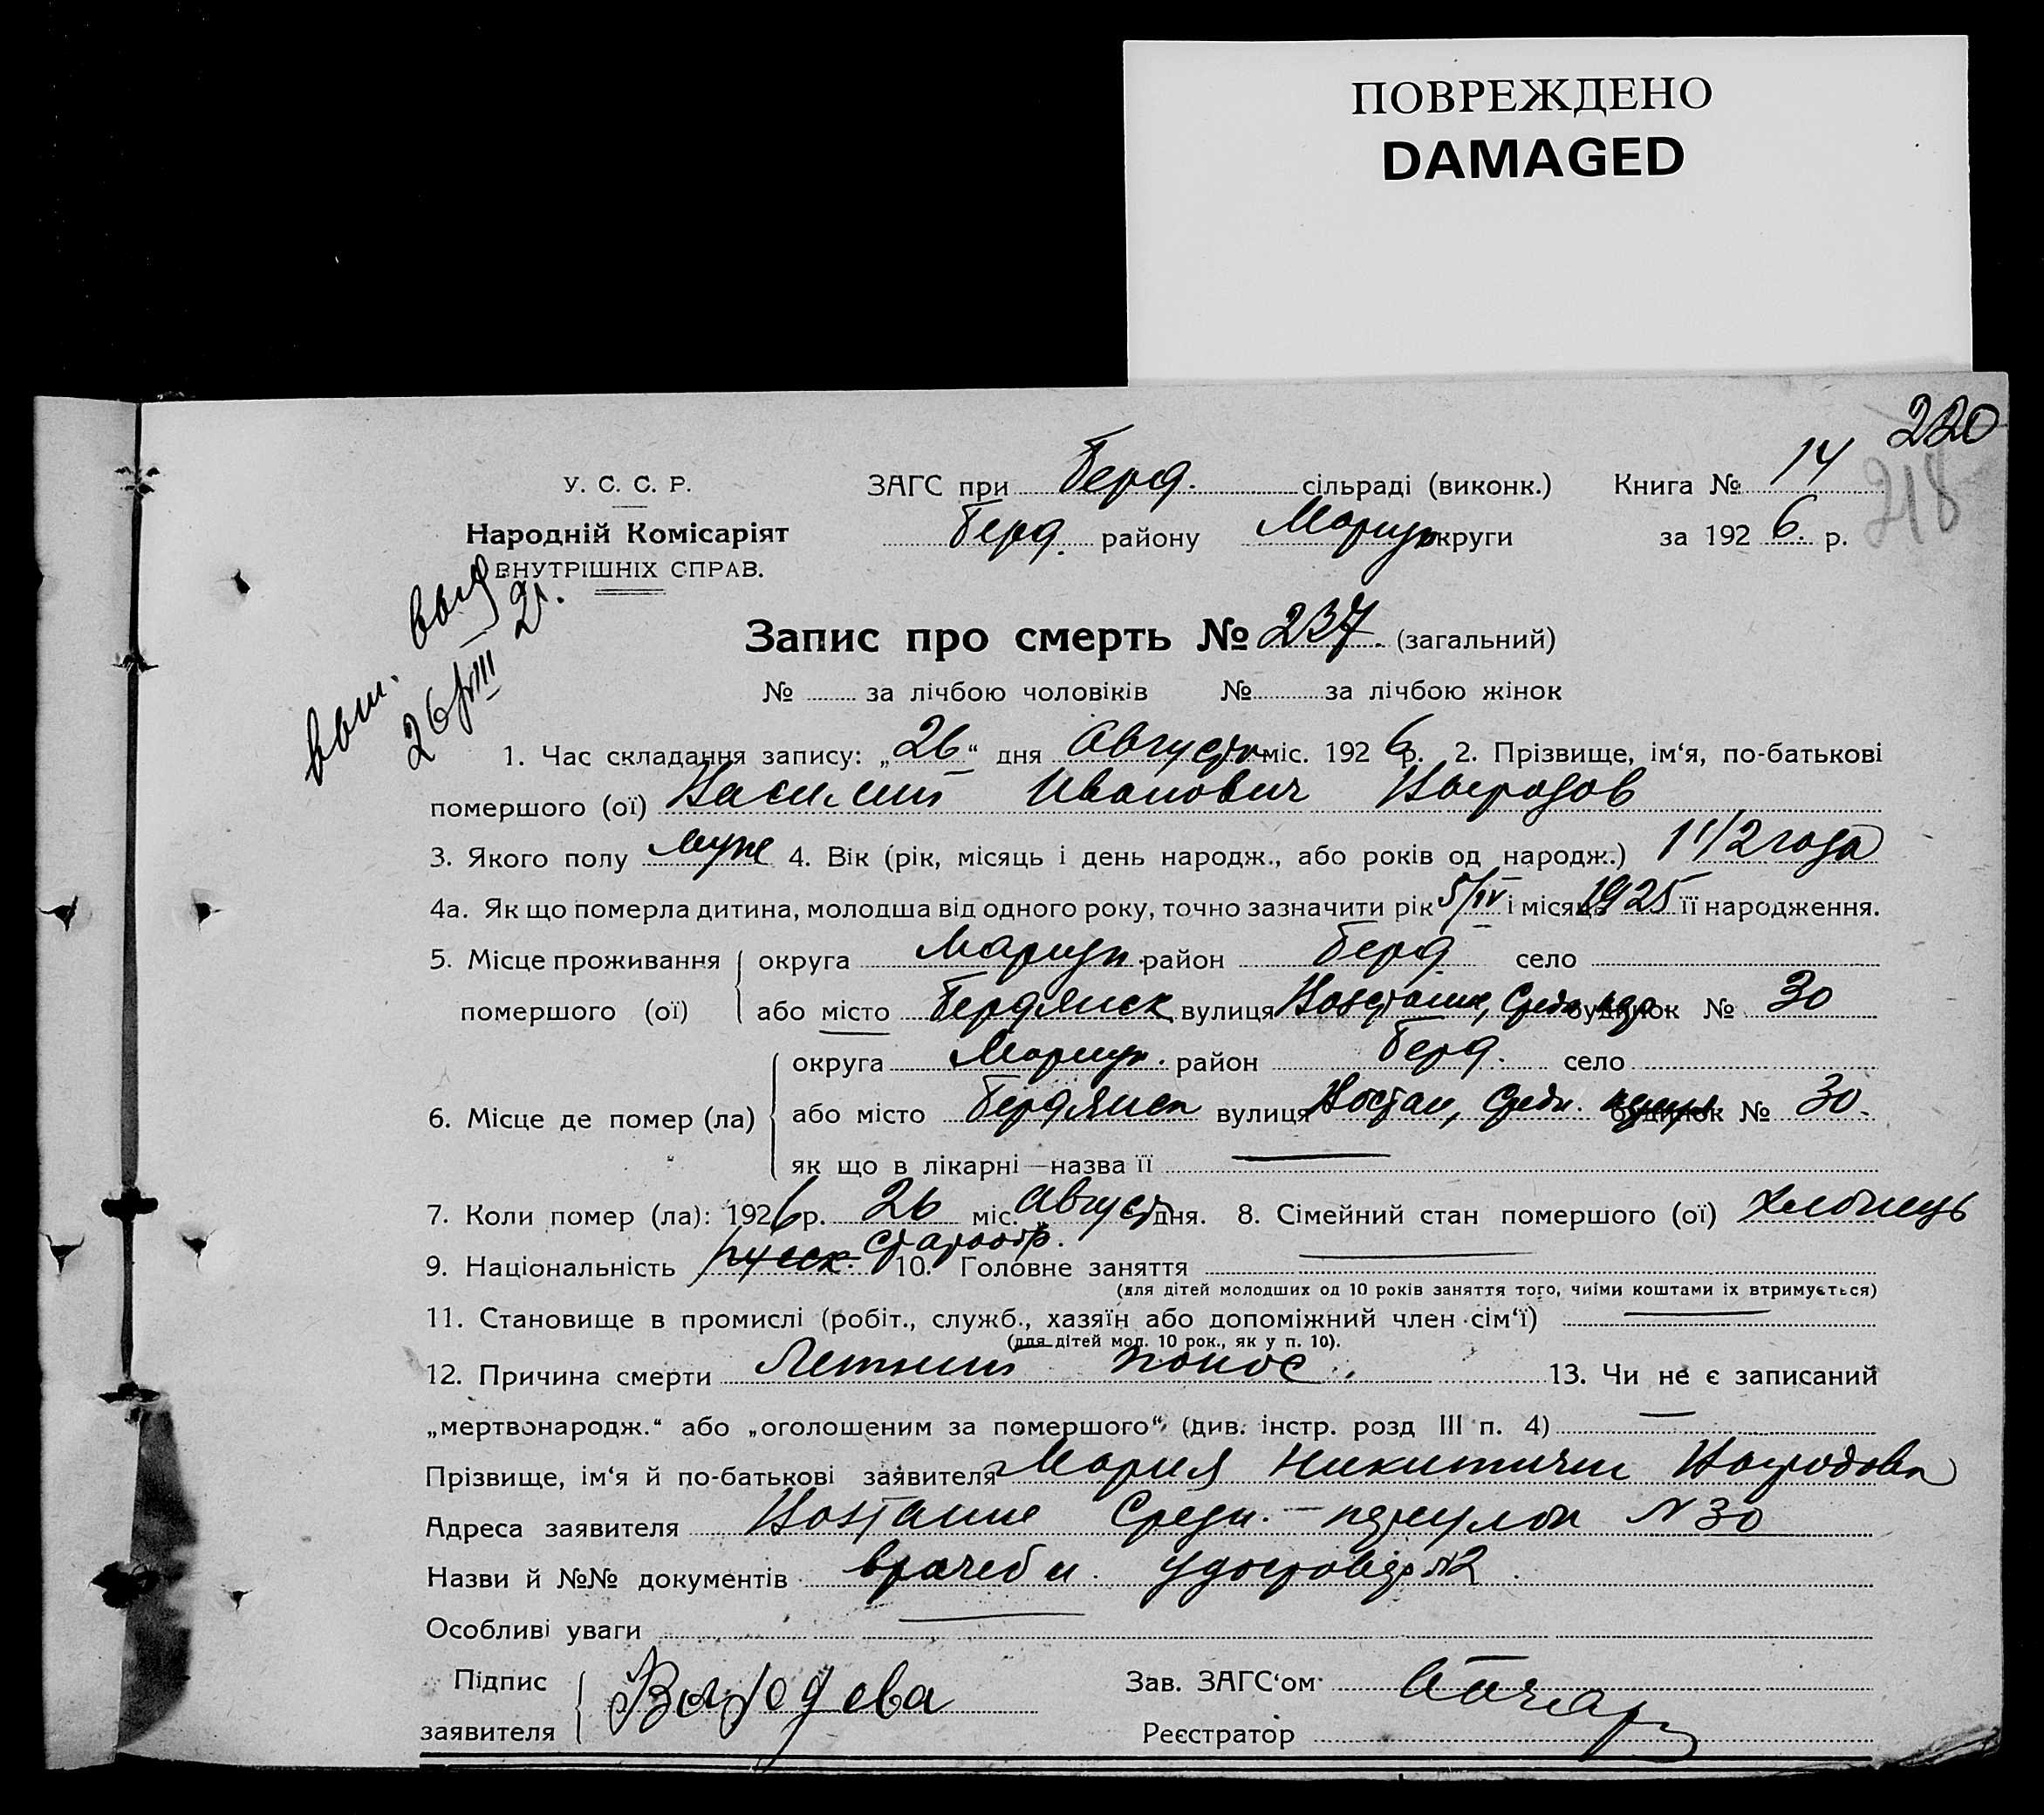 ПОВРЕЖДЕНО
DAMAGED
220
218
У. С. С. Р.
Народній Комісаріят
ВНУТРІШНІХ СПРАВ.
ЗАГС при Берд. сільраді (виконк.) Книга № 14
Берд. району Мариуп округи за 1926. р.
26/VIII
Запис про смерть № 237. (загальний)
№ за лічбою чоловіків № за лічбою жінок
1. Час складання запису: „26“ дня Августа міс. 1926 р. 2. Прізвище, ім‘я, по-батькові
помершого (ої) Василий Иванович
3. Якого полу муже 4. Вік (рік, місяць і день народж., або років од народж.) 1 1/2 года
4а. Як що померла дитина, молодша від одного року, точно зазначити рік 5/IV і місяць 1925 її народження.
5. Місце проживання округа Мариуп. район Берд. село
помершого (ої) або місто Бердянск вулиця будинок № 30
округа Мариуп. район Берд. село
6. Місце де помер (ла) або місто Бердянск вулиця Средн. будинок № 30.
як що в лікарні—назва її
7. Коли помер (ла): 1926 р. 26 міс. Август дня. 8. Сімейний стан помершого (ої) хлопець
старообр.
9. Національність русск. 10. Головне заняття
(для дітей молодших од 10 років заняття того, чиїми коштами їх втримується)
11. Становище в промислі (робіт., служб., хазяїн або допоміжний член сім‘ї)
(для дітей мол. 10 рок., як у п. 10).
12. Причина смерти Летний понос. 13. Чи не є записаний
„мертвонародж.“ або „оголошеним за помершого“ (див. інстр. розд III п. 4)
Прізвище, ім‘я й по-батькові заявителя Мария Никитична
Адреса заявителя Средн. N 30
Назви й №№ документів врачебн. удостовер №2.
Особливі уваги
Підпис
заявителя
Зав. ЗАГС‘ом
Реєстратор